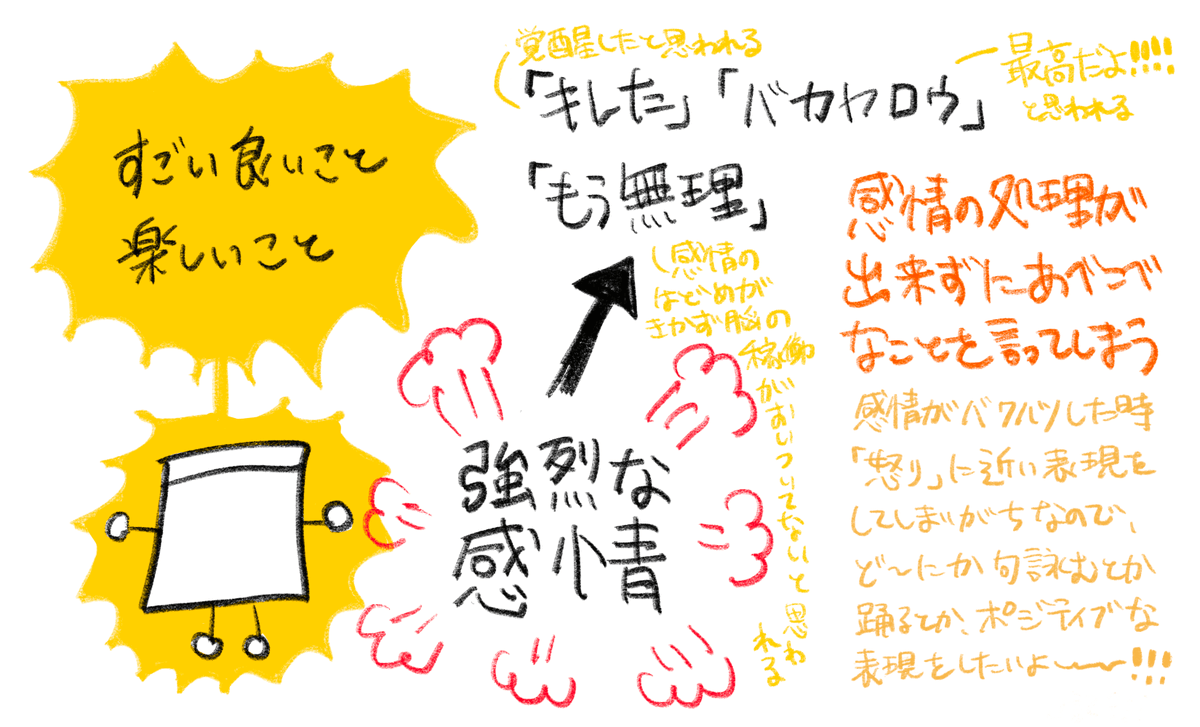 すごい良いこと
楽しいこと
覚醒したと思われる
「キレた」「バカヤロウ」
最高だよ!!!!
と思われる
「もう無理」
感情の
はどめが
きかず脳の
稼働
がおいついてないと思わ
れる
強烈な
感情
感情の処理が
出来ずにあべこべ
なことを言ってしまう
感情がバクハツした時
「怒り」に近い表現を
してしまいがちなので、
ど〜にか句詠むとか
踊るとか、ポジティブな
表現をしたいよ〜〜!!!